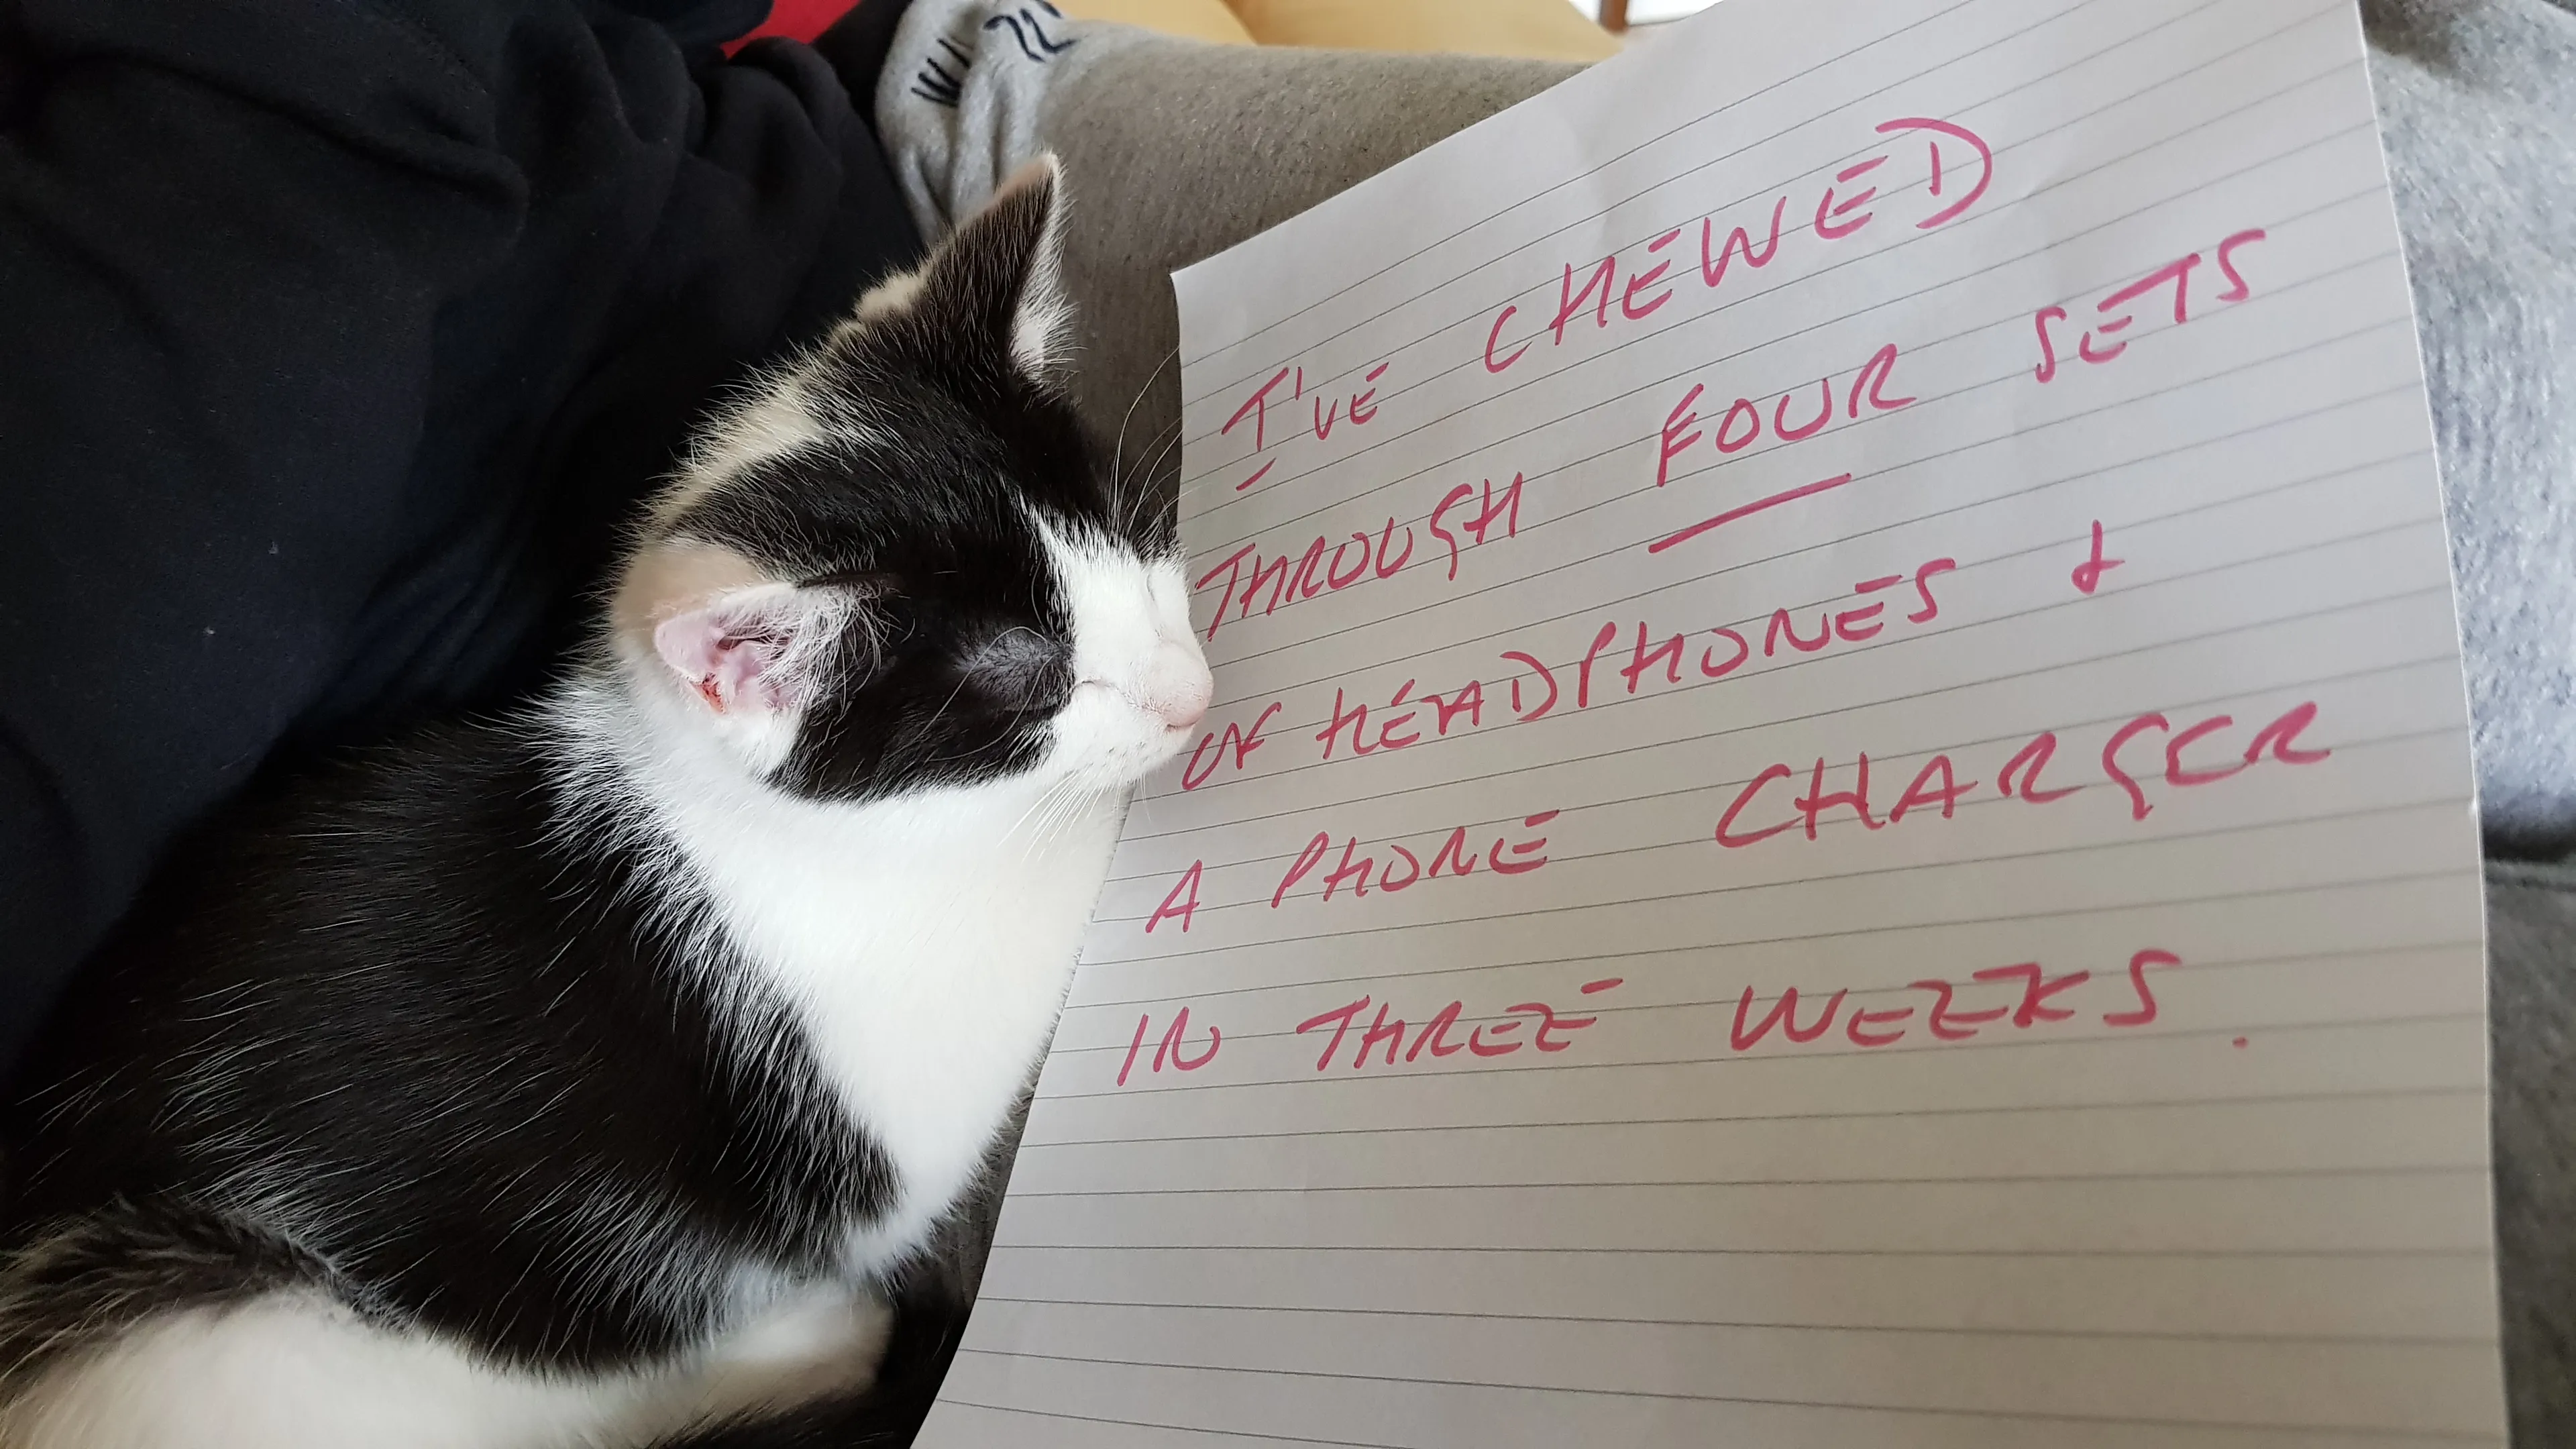 I'VE CHEWED
THROUGH FOUR SETS
OF HEADPHONES &
A PHONE CHARGER
IN THREE WEEKS.